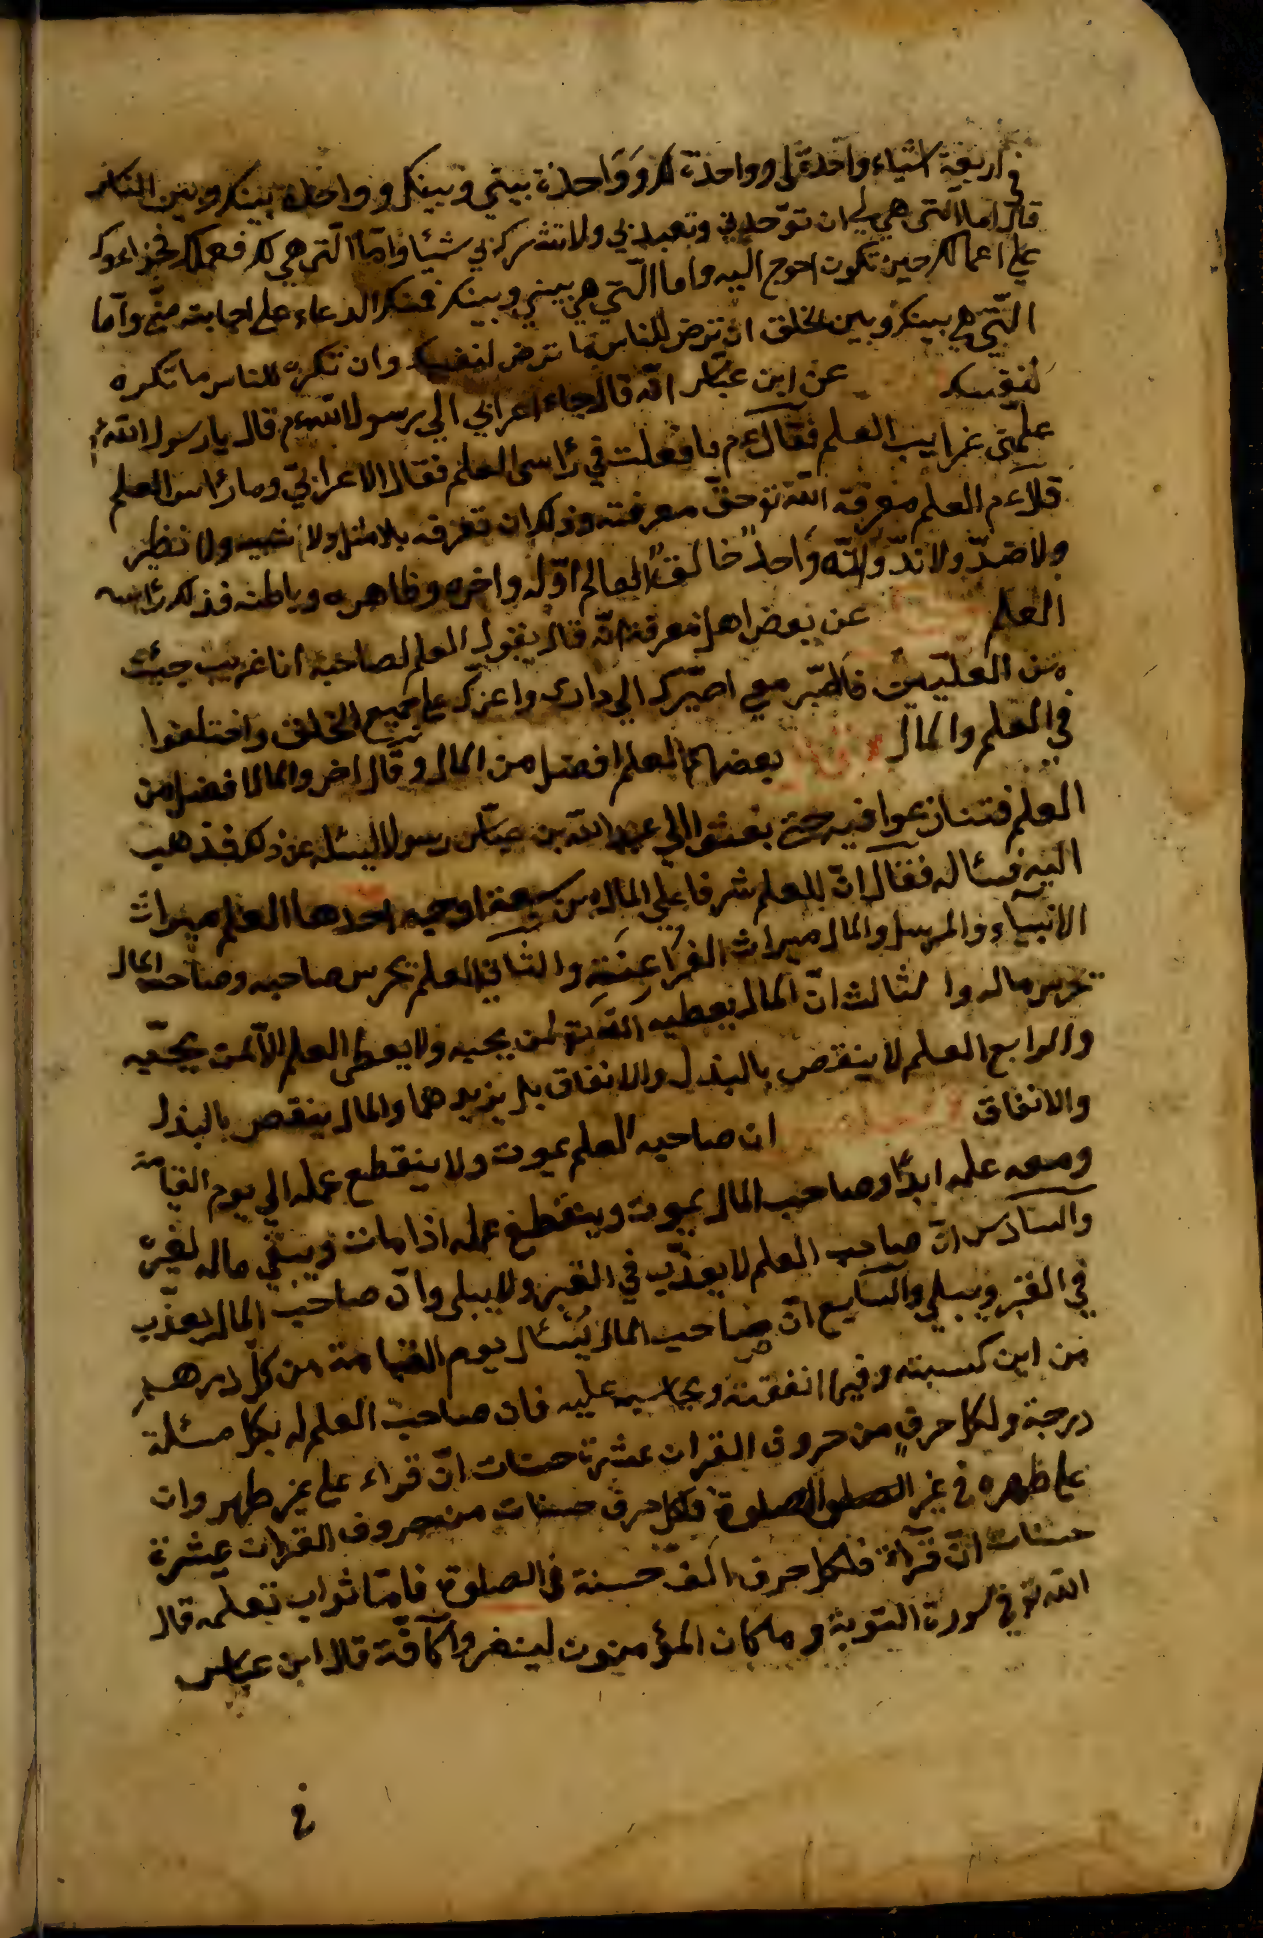 في اربعة اشياء واحدة لي وواحدة لك وَوَاحدة بيني وبينك وواحدة بينك وبين الناس
قال اما الّتى هي لي ان توّحدني وتعبدني ولا تشرك بي شيئا وامّا الّتى هي لك فعملك فجزاءوك
على اعمالك حين تكون احوج اليه واما الّتي هي بيني وبينك فمنك الدعاء وعلى اجابته منّي وامّا
الّتي هي بينك وبين الخلق ان ترض للناس ما ترض لنفسك وان تكره للناس ما تكره
لنفسك عن ابن عبّاس انّه قال جاء اعرابي الي رسول اللهءم قال يا رسول الله
علّمني غرايب العلم فقالءم ما فعلت في رأس العلم فقال الاعرابيّ وما رأس العلم
قالءم العلم معرفة الله تع حقّ معرفته وذلك ان تعرفه بلا مثل ولا شبيه ولا نظير
ولا ضدّ ولا ندّ وانّه واحدٌ خالق العالم اوّله واخره وظاهره وباطنه فذلك رأس
العلم عن بعض اهل معرفة انّه قال يقول العلم لصاحبه انا غريب جيئت
من العلّيين فاصبر معي اصيّرك الي دارى واعزك على جميع الخلق واختلفوا
في العلم والمال بعضهم العلم افضل من المال وقال اخر والمال افضل من
العلم فتنازعوا فيه حتى بعثوا الي عبد الله بن عبّاس رسولا ليسئله عن ذلك فذهب
اليه فسئاله فقال انّ للعلم شرفا على المال من سبعة اوجه احدها العلم ميراث
الانبياء والمرسل والمال ميراث الفراعنَة والثاني العلم يحرس صاحبه وصاحب المال
يحرس ماله والثالث انّ المال يعطيه الله تع لمن يحبه ولا يعطى العلم الاّ لمن يحبّه
والرابع العلم لا ينقص بالبذل والانفاق بل يزيدهما والمال ينقص بالبذل
والانفاق ان صاحب العلم يموت ولا ينقطع عمله الي يوم القيامة
ومعه علمه ابدًا وصاحب المال يموت وينقطع عمله اذا مات ويبقي ماله لغيره
والسادس انّ صاحب العلم لا يعذّب في القبر ولا يبلى وانّ صاحب المال يعذّب
في القبر ويبلي والسابع انّ صاحب المال يُسْئال يوم القيامة من كلّ درهم
من اين كسبته وفيما انفقته ويحاسب عليه فان صاحب العلم له بكل مسئلة
درجة ولكل حرفٍ من حروف القران عشرة حسنات انّ قراء على غير طهر وان
على طهره في غير الصلوة فلكل حرف حسنات من حروف القران عشرة
حسنات انّ قرآة فلكل حرف الف حسنة في الصلوة فامّا ثواب تعلمه قال
الله تع في سورة التوبة وما كان المؤمنون لينفروا كآفّة قال ابن عبّاس